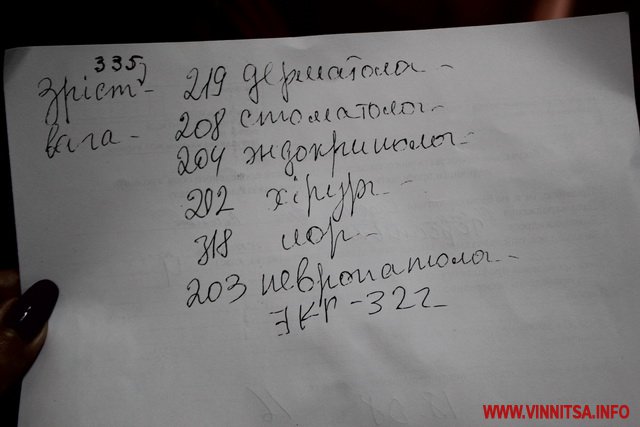 335
Зріст - 219 дерматолог -
вага - 208 стоматолог -
204 эндокринолог -
202 хірург -
318 лор -
203 невропатолог -
ЭКГ - 322
WWW.VINNITSA.INFO